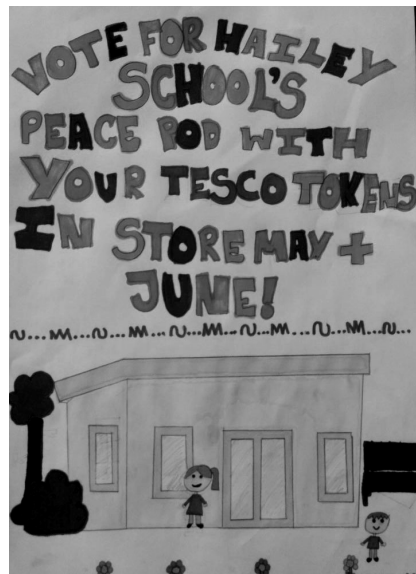 VOTE FOR HAILEY
SCHOOL'S
PEACE POD WITH
YOUR TESCO TOKENS
IN STORE MAY +
JUNE!